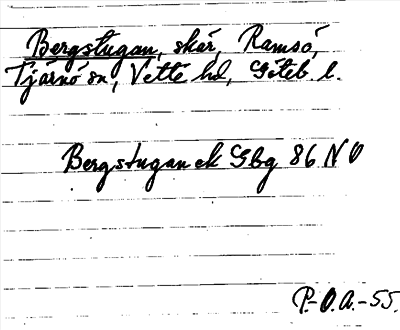 Bergstugan, skär, Ramsö,
Tjärnö sn, Vette hd, Göteb. l.
Bergstugan ek Gbg 86 NO
P.-O.A.-55.